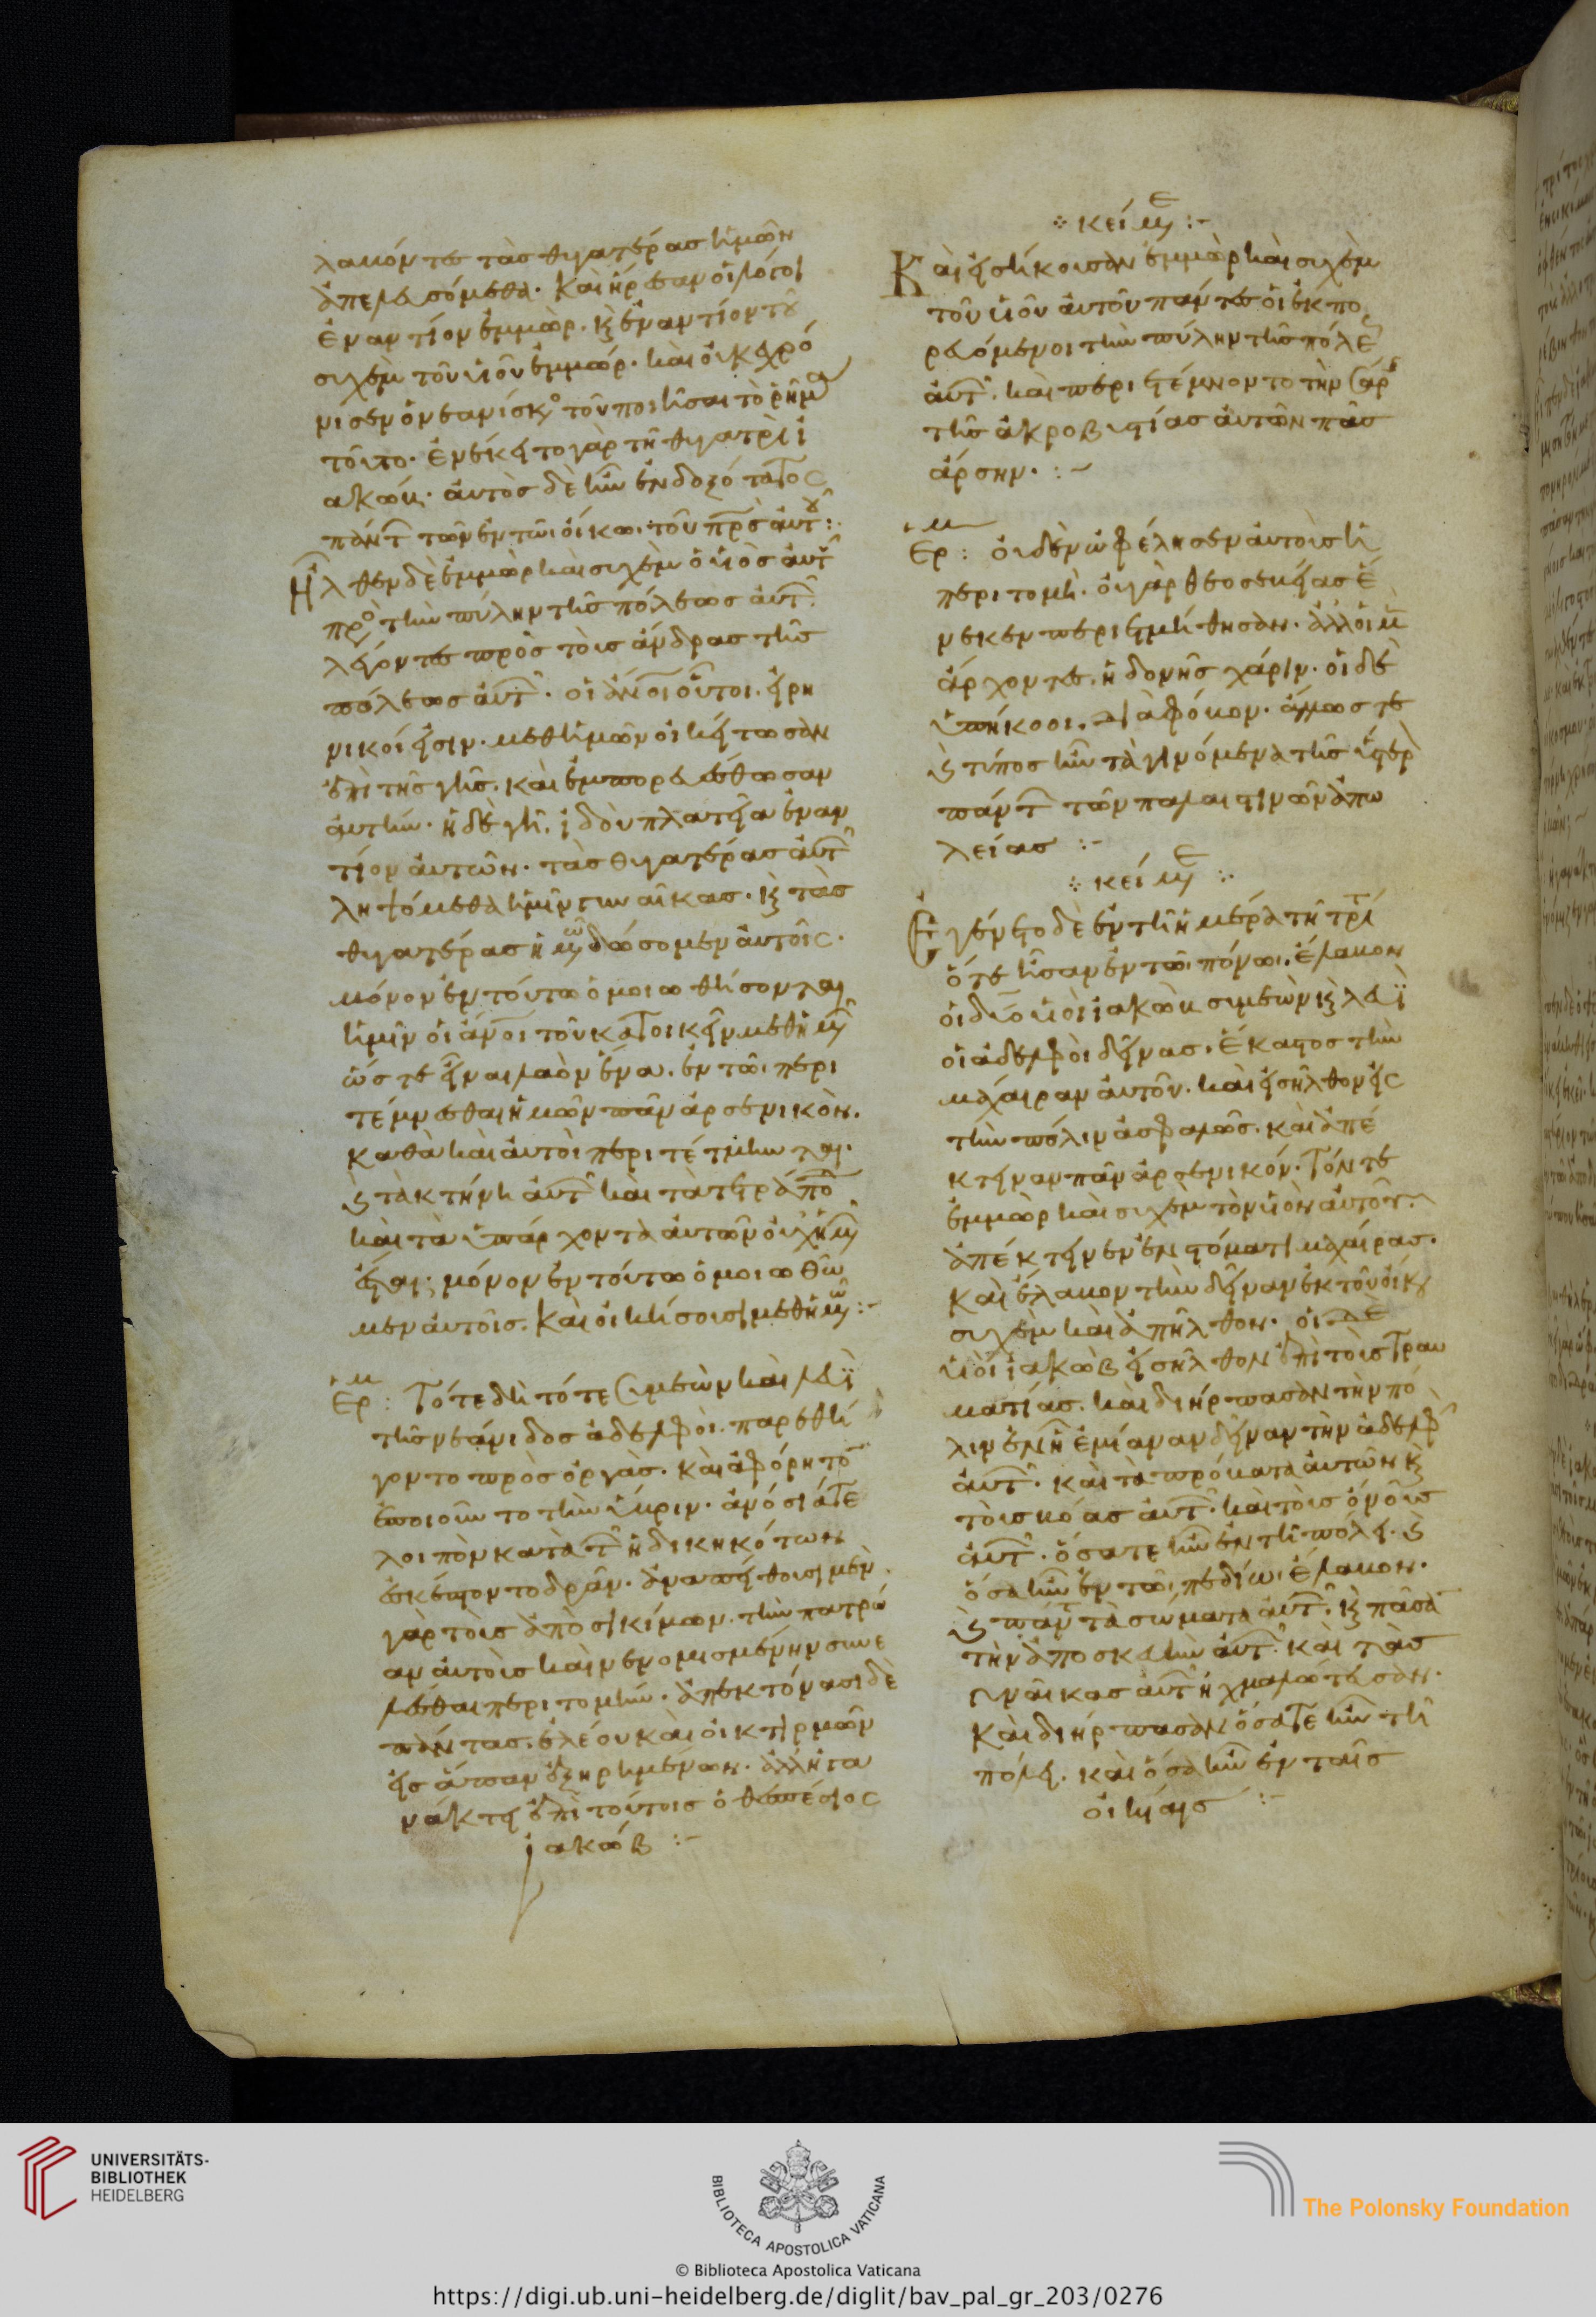 λαβόντες τὰς θυγατέρας ἡμῶν
ἀπελευσόμεθα· καὶ ἤρεσαν οἱ λόγοι
ἐναντίον ἐμμὼρ· κ ἐναντίον τοῦ
συχὲμ τοῦ υἱοῦ ἐμμώρ· καὶ οὐκ ἐχρό
νισεν ὁ νεανίσκος τοῦ ποιῆσαι τὸ ῥῆμα
τοῦτο· ἐνέκειτο γὰρ τῆ θυγατρὶ ἰ
ακώβ· αὐτὸς δὲ ἦν ἐνδοξότατος
πάντ τῶν ἐν τῶι οἴκωι τοῦ πρς αὐτοῦ:
Ἦλθεν δὲ ἐμμὼρ καὶ συχὲμ ὁ υἱὸς αὐτοῦ
πρὸ τὴν πύλην τῆς πόλεως αὐτ
λέγοντες πρὸς τοὺς ἄνδρας τῆς
πόλεως αὐτ· οἱ ἀνοι οὗτοι εἰρη
νικοί εἰσιν· μεθ ἡμῶν οἰκείτωσαν
ἐπὶ τῆς γῆς· καὶ ἐμπορευέσθωσαν
αὐτὴν· ἡ δὲ γῆ ἰδοὺ πλατεῖα ἐναν
τίον αὐτῶν· τὰς θυγατέρας αὐτ
ληψόμεθα ἡμῖν γυναῖκας· κ τὰς
θυγατέρας ἡμῶν δώσομεν αὐτοῖς·
μόνον ἐν τούτω ὁμοιωθήσονται
ἡμῖν οἱ ἄνοι τοῦ κατοικεῖν μεθ ἡμ
ὥστε εἶναι λαὸν ἕνα· ἐν τῶι περι
τέμνεσθαι ἡμῶν πᾶν ἀρσενικὸν·
καθὰ καὶ αὐτοὶ περιτέτμηνται·
κ τὰ κτήνη αὐτ καὶ τὰ τετράπο
καὶ τὰ ὑπάρχοντα αὐτῶν οὐχ ἡμ
ἔσται; μόνον ἐν τούτω ὁμοιωθῶ
μεν αὐτοῖς· καὶ οἰκήσουσι μεθ ἡμῶν :-
Ερμ : Τότε δὴ τότε συμεὼν καὶ λευὶ
τῆς νεάνιδος ἀδελφοὶ· παρεθή
γοντο πρὸς ὀργὰς· καὶ ἀφόρητο
ἐποιοῦντο τὴν ὕβριν· ἀνόσιά τε
λοιπὸν κατὰ τ ἠδικηκότων
ἐσκέπτοντο δρᾶν· ἀναπείθουσι μὲν
γὰρ τοὺς ἀπὸ σικίμων· τὴν πατρώ
αν αὐτοῖς καὶ νενομισμένην συνε
λέσθαι περιτομὴν· ἀπεκτόνασι δὲ
πάντας· ἐλέου καὶ οἰκτιρμῶν
εἰς ἅπαν ἐξηρημένων· ἀλλ ἠγα
νάκτει ἐπὶ τούτοις ὁ θεσπέσιος
ἰακώβ :-
κείμε :-
Καὶ εἰσήκουσαν ἐμμὼρ καὶ συχὲμ
τοῦ υἱοῦ αὐτοῦ πάντες οἱ ἐκπο
ρευόμενοι τὴν πύλην τῆς πόλε
αὐτ· καὶ περιετέμνοντο τὴν σάρ
τῆς ἀκροβυστίας αὐτῶν πᾶς
ἄρσην· :-
Ερμ : οὐδὲν ὠφέλησεν αὐτοὺς ἡ
περιτομὴ· οὐ γὰρ θεοσεβείας ἕ
νεκεν περιετμήθησαν· ἀλλ οἱ μ
ἄρχοντες· ἡδονῆς χάριν· οἱ δὲ
ὑπήκοοι· διὰ φόβον· ἄλλως τε
κ τύπος ἦν τὰ γινόμενα τῆς ὑπὲρ
πάντ τῶν παλαιστινῶν ἀπω
λείας :-
κείμε :-
Ἐγένετο δὲ ἐν τῆ ἡμέρα τῆ τρί
ὅτε ἦσαν ἐν τῶι πόνωι· ἔλαβον
οἱ δύο υἱοὶ ἰακὼβ συμεὼν κ λευὶ
οἱ ἀδελφοὶ δείνας· ἕκαστος τὴν
μάχαιραν αὐτοῦ· καὶ εἰσῆλθον εἰς
τὴν πόλιν ἀσφαλῶς· καὶ ἀπέ
κτειναν πᾶν ἀρσενικόν· τόν τε
ἐμμὼρ καὶ συχὲμ τὸν υἱὸν αὐτοῦ·
ἀπέκτειναν ἐν στόματι μαχαίρας·
καὶ ἔλαβον τὴν δείναν ἐκ τοῦ οἴκου
συχὲμ καὶ ἀπῆλθον· οἱ δὲ
υἱοὶ ἰακὼβ εἰσῆλθον ἐπὶ τοὺς τραυ
ματίας· καὶ διήρπασαν τὴν πό
λιν ἐν ἧ ἐμίαναν δείναν τὴν ἀδελφ
αὐτ· καὶ τὰ πρόβατα αὐτῶν κ
τοὺς βόας αὐτ· καὶ τοὺς ὄνους
αὐτ· ὅσα τε ἦν ἐν τῆ πόλει· κ
ὅσα ἦν ἐν τῶι πεδίωι ἔλαβον·
κ πάντ τὰ σώματα αὐτ· κ πᾶσα
τὴν ἀποσκευὴν αὐτ· καὶ τὰς
γυναῖκας αὐτ ἠχμαλώτευσαν·
καὶ διήρπασαν ὅσα τε ἦν τῆ
πόλει· καὶ ὅσα ἦν ἐν ταῖς
οἰκίαις :-
UNIVERSITÄTS-
BIBLIOTHEK
HEIDELBERG
BIBLIOTECA APOSTOLICA VATICANA
The Polonsky Foundation
© Biblioteca Apostolica Vaticana
https://digi.ub.uni-heidelberg.de/diglit/bav_pal_gr_203/0276